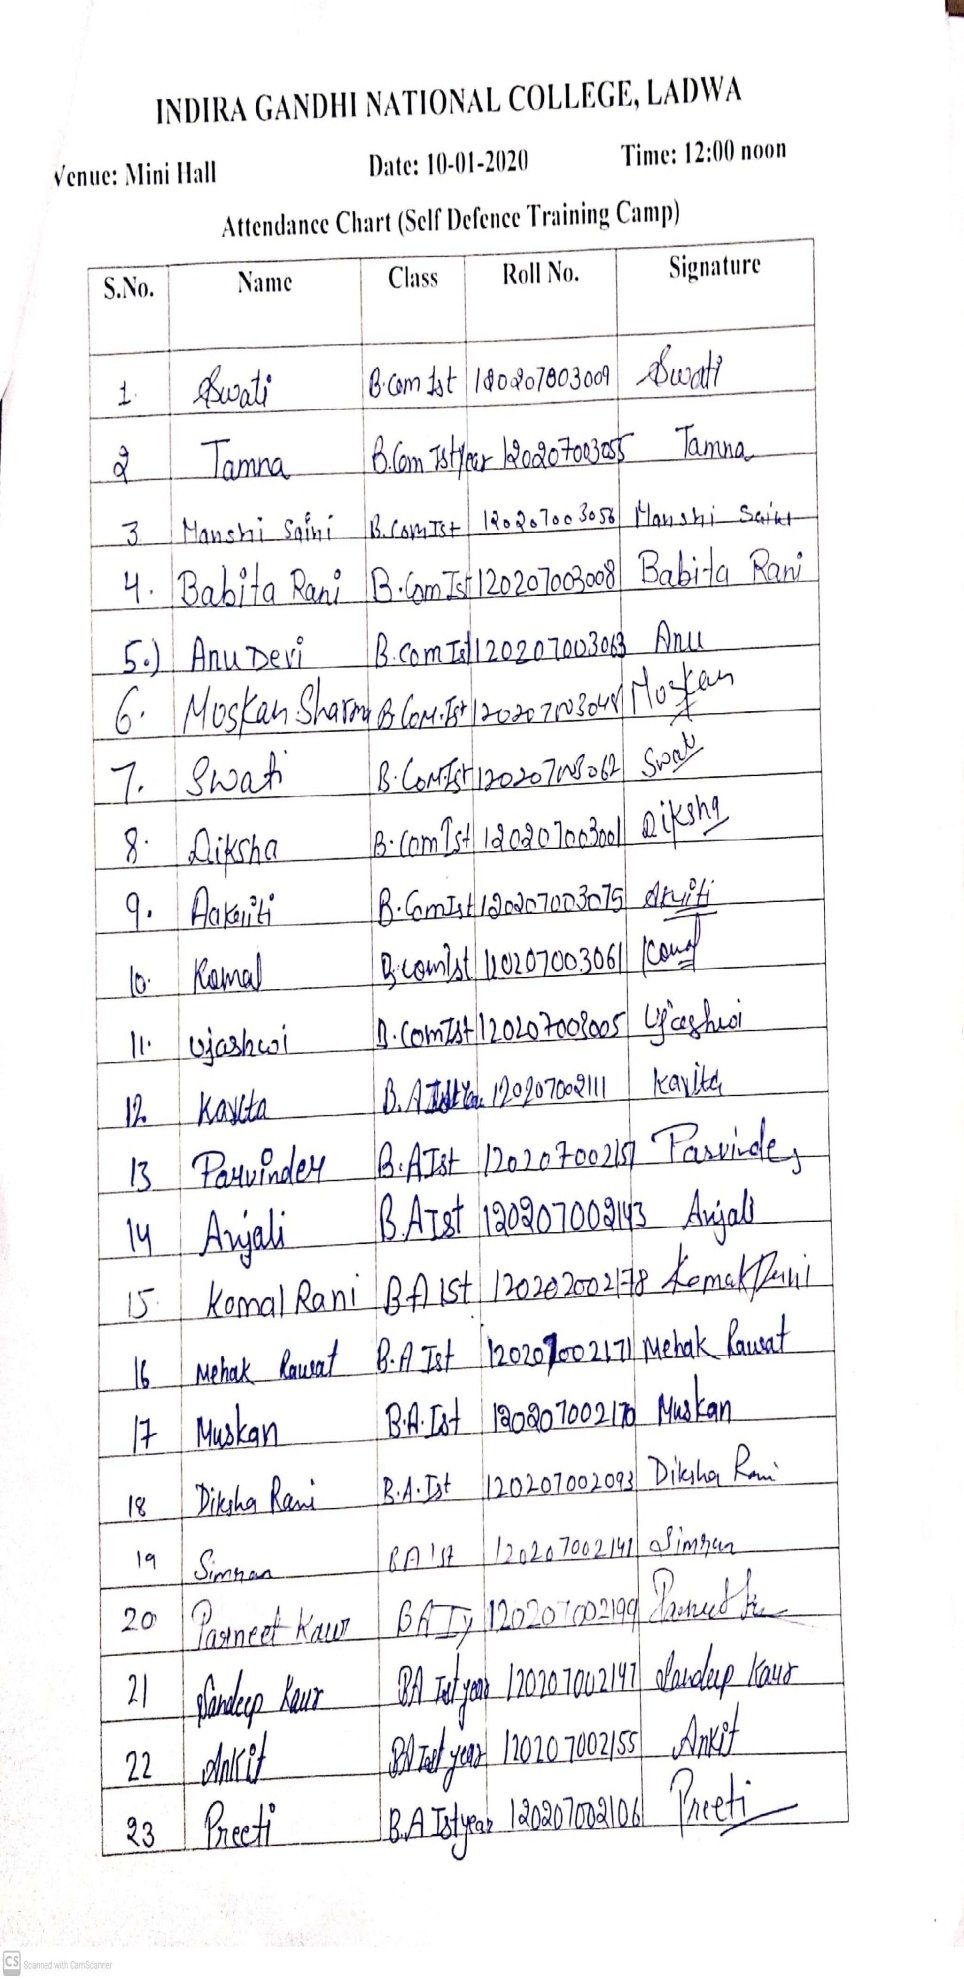 INDIRA GANDHI NATIONAL COLLEGE, LADWA
Venue: Mini Hall Date: 10-01-2020 Time: 12:00 noon
Attendance Chart (Self Defence Training Camp)
S.No. Name Class Roll No. Signature
1. Swati B.Com Ist Swati
2 Tamna B.Com Ist year 120207003055 Tamna
3 Manshi Saini B.Com Ist 120207003056 Manshi Saini
4. Babita Rani B.Com Ist 120207003008 Babita Rani
5.) Anu Devi B.Com Ist 120207003063 Anu
6. Muskan Sharma B.Com.Ist 120207003048 Muskan
7. Swati B.Com Ist 120207003062 Swati
8. Diksha B.Com Ist 120207003001 Diksha
9. Aakriti B.Com Ist 120207003075 Akriti
10. Komal B.com Ist 120207003061 Komal
11. Ujashwi B.Com Ist 120207003005 Ujashwi
12 Kavita B.A Ist 120207002111 Kavita
13 Parvinder B.A Ist 120207002151 Parvinder
14 Anjali B.A Ist 120207002143 Anjali
15. Komal Rani BA Ist 120202002178 Komal Rani
16 Mehak Rawat B.A Ist 120207002171 Mehak Rawat
17 Muskan B.A. Ist 120207002170 Muskan
18 Diksha Rani B.A. Ist 120207002093 Diksha Rani
19 Simran BA Ist 120207002141 Simran
20 Parneet Kaur BA Iy 120207002199 Parneet
21 Sandeep Kaur BA Ist year 120207002147 Sandeep Kaur
22 Ankit BA Ist year 120207002155 Ankit
23 Preeti B.A Ist year 120207002106 Preeti
CS Scanned with CamScanner